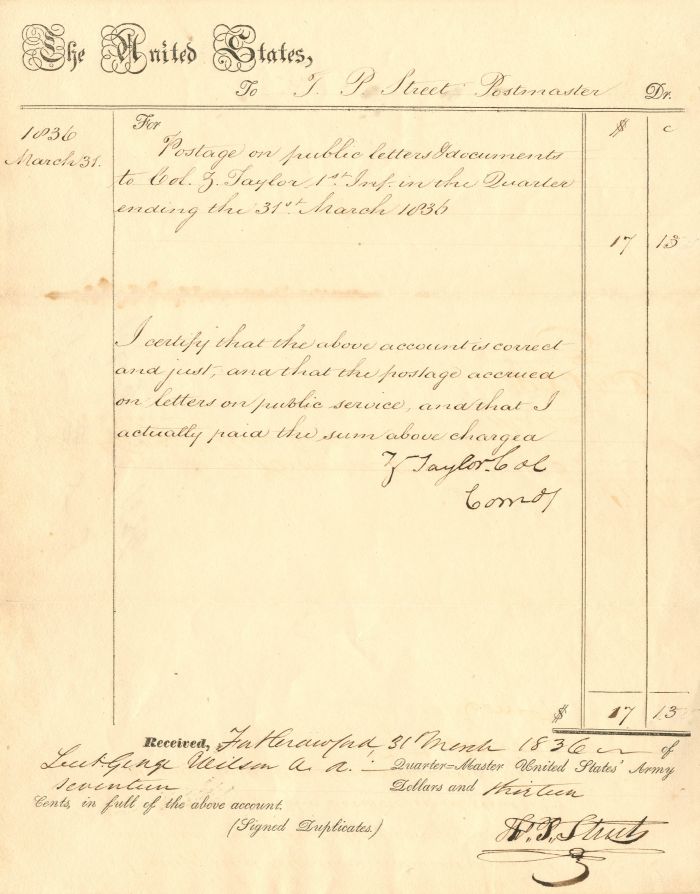 The United States,
To J. P. Street Postmaster Dr.
1836
March 31.
For
$ c
Postage on public letters & documents
to Col. Z. Taylor, 1st Inf. in the Quarter
ending the 31st March 1836
17 13
I certify that the above account is correct
and just, and that the postage accrued
on letters on public service, and that I
actually paid the sum above charged
Z Taylor Col
Comdg
$ 17 13
Received, Fort Crawford, 31 March 1836 of
Lieut George Wilson A. A. Quarter=Master United States' Army
seventeen Dollars and thirteen
Cents, in full of the above account.
(Signed Duplicates.)
P. Street